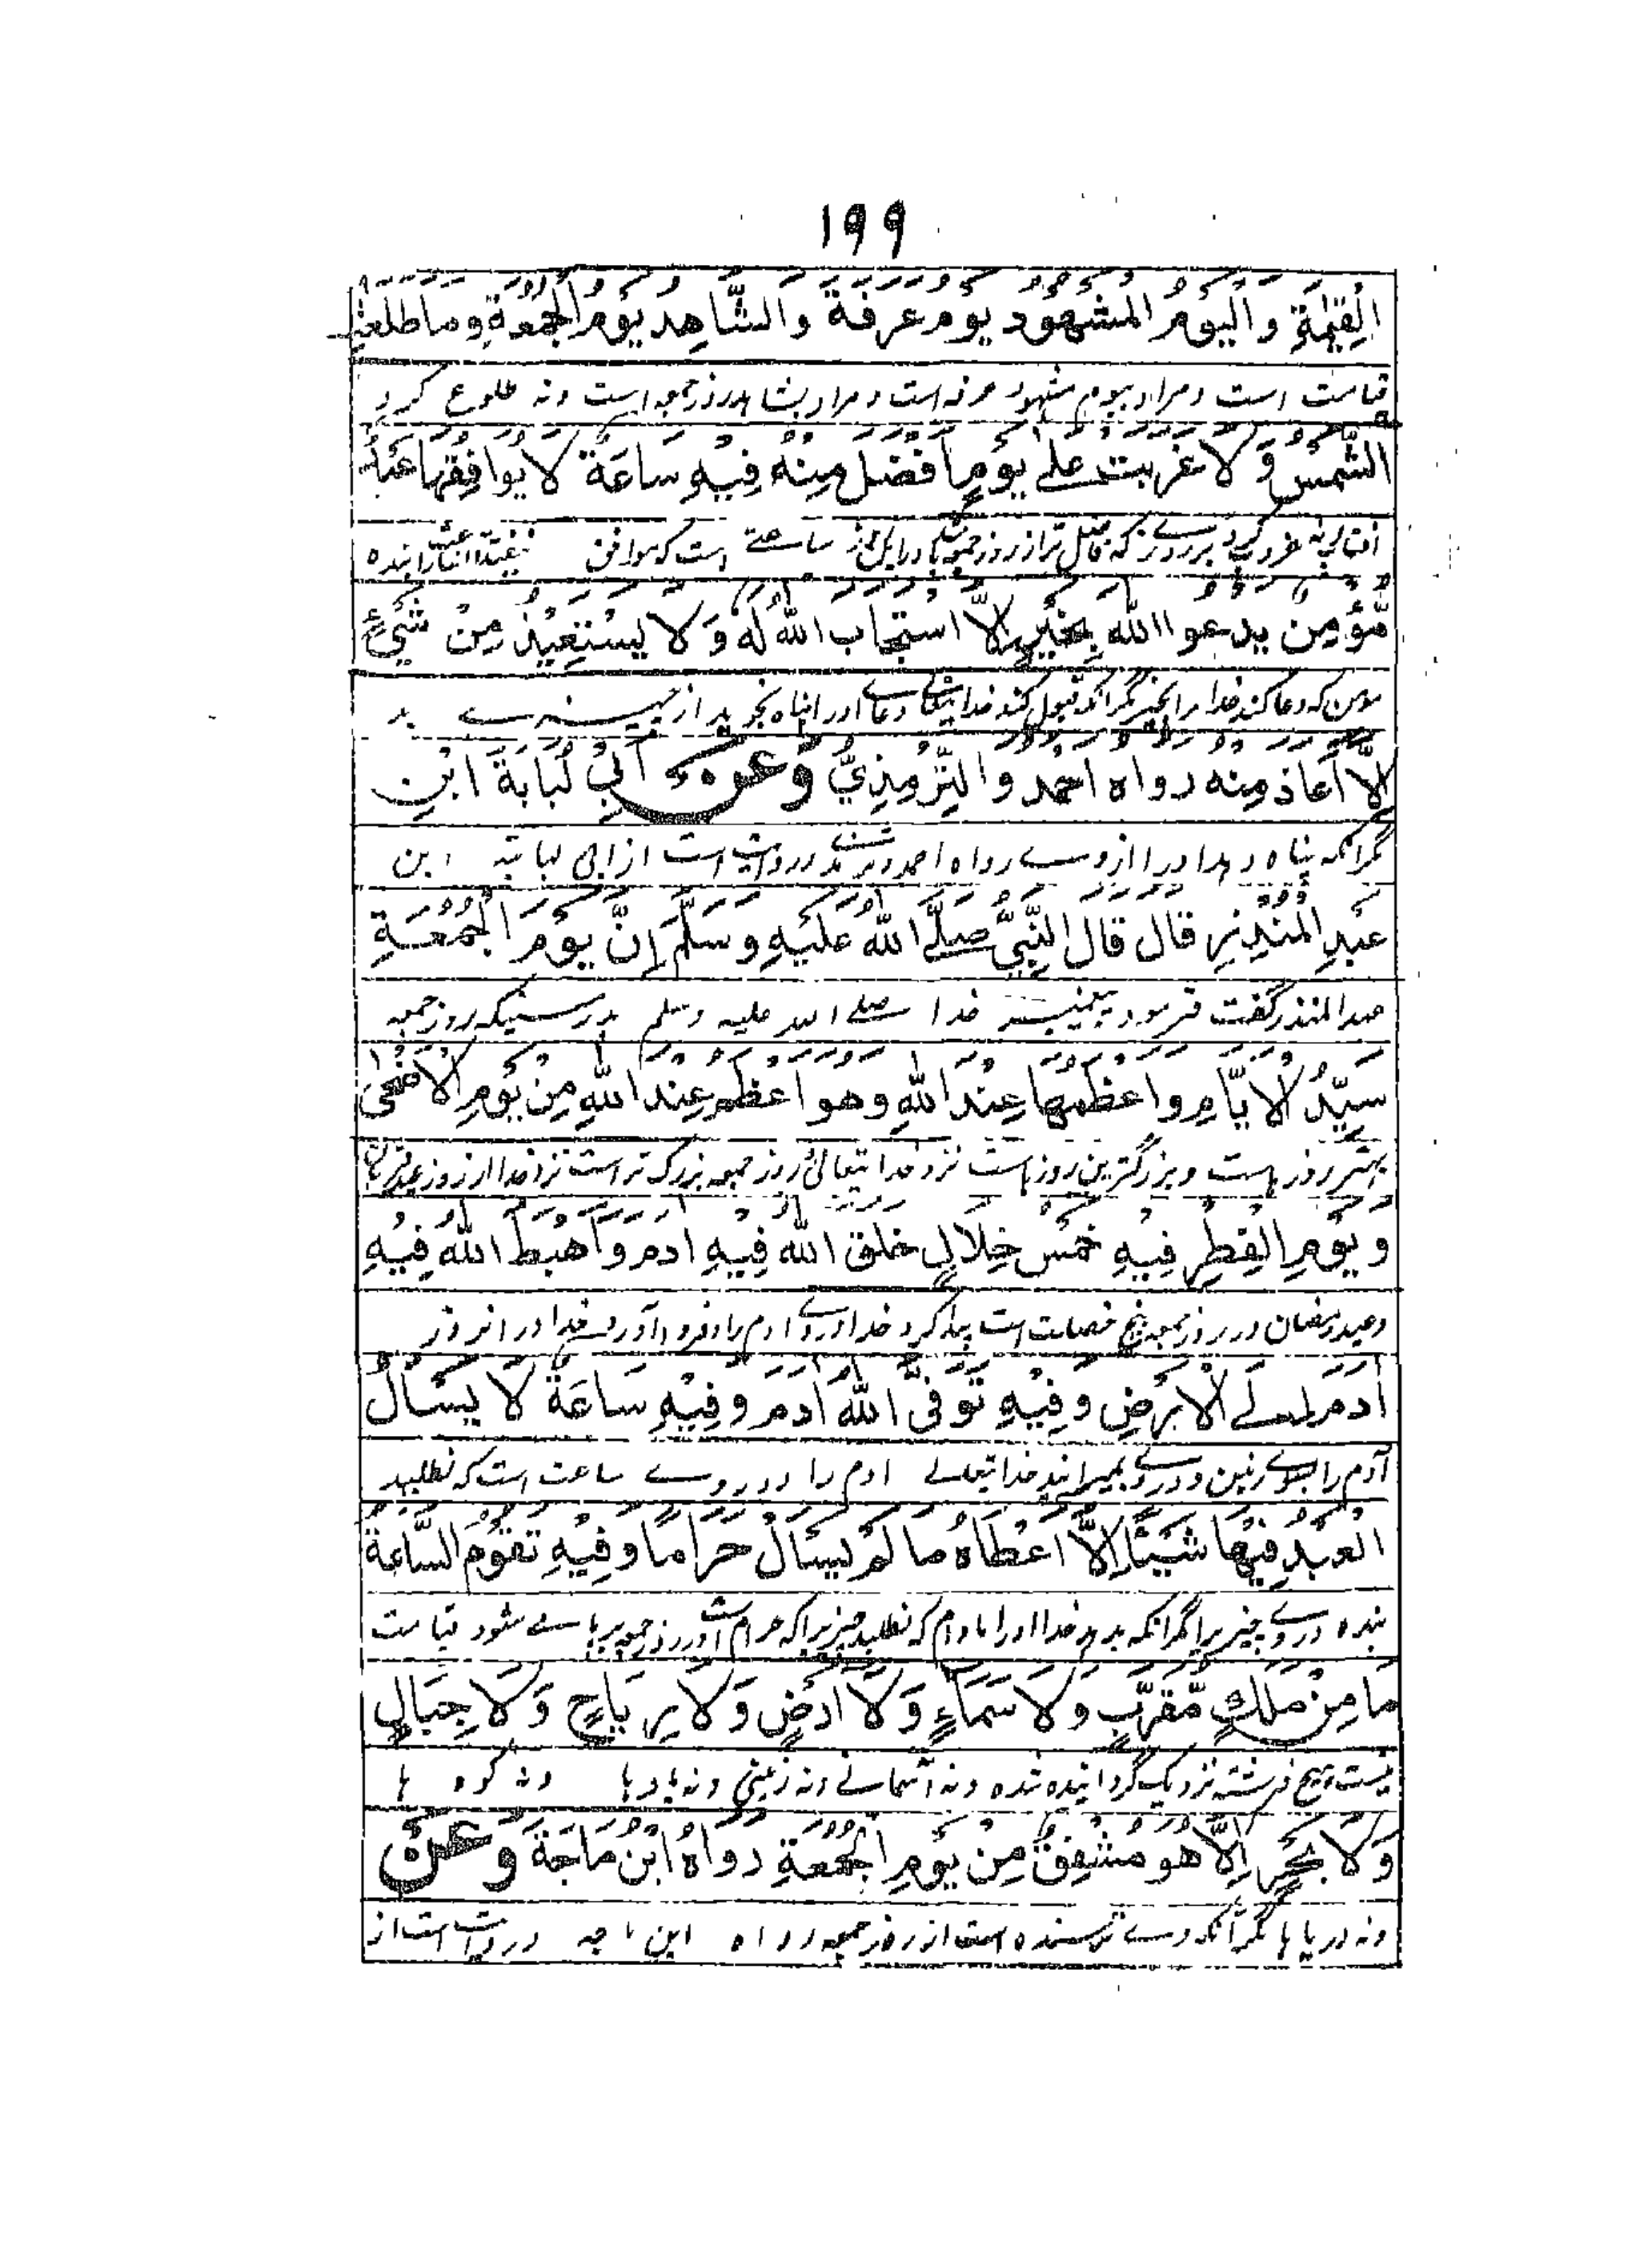 ۱۹۹
الْقِيٰمَةِ وَالْيَوْمُ الْمَشْهُوْدُ يَوْمُ عَرَفَةَ وَالشَّاهِدُ يَوْمُ الْجُمُعَةِ وَمَا طَلَعَتِ
قیامت است و مراد بیوم مشهود عرفه است و مراد بشاهد روز جمعه است و نه طلوع کرد
الشَّمْسُ وَلَا غَرَبَتْ عَلٰى يَوْمٍ اَفْضَلَ مِنْهُ فِيْهِ سَاعَةٌ لَا يُوَافِقُهَا عَبْدٌ
نه غروب کرد بر روزے که فاضل تر از روز جمعه ساعتے است که موافق بنده
مُّؤْمِنٌ يَدْعُو اللّٰهَ بِخَيْرٍ اِلَّا اسْتَجَابَ اللّٰهُ لَهٗ وَلَا يَسْتَعِيْذُ مِنْ شَيْءٍ
مومن که دعا کند خدا را بخیر مگر آنکه قبول کند خدا تعالے دعاے اورا و پناه نجوید از چیزے بد
اِلَّا اَعَاذَ مِنْهُ رَوَاهُ اَحْمَدُ وَالتِّرْمِذِيُّ وَعَنْ اَبِيْ لُبَابَةَ ابْنِ
مگر آنکه پناه دهد اورا ازوے رواه احمد و ترمذی و روایت است از ابی لبابة ابن
عَبْدِ الْمُنْذِرِ قَالَ قَالَ النَّبِيُّ صَلَّى اللّٰهُ عَلَيْهِ وَسَلَّمَ اِنَّ يَوْمَ الْجُمُعَةِ
عبد المنذر گفت فرمود پیغمبر خدا صلے الله علیه وسلم بدرستیکه روز جمعه
سَيِّدُ الْاَيَّامِ وَاَعْظَمُهَا عِنْدَ اللّٰهِ وَهُوَ اَعْظَمُ عِنْدَ اللّٰهِ مِنْ يَوْمِ الْاَضْحٰى
بهتر روزهاست و بزرگترین روزهاست نزد خدا تعالیٰ و روز جمعه بزرگ تر است نزد خدا از روز عید قربان
وَيَوْمِ الْفِطْرِ فِيْهِ خَمْسُ خِلَالٍ خَلَقَ اللّٰهُ فِيْهِ اٰدَمَ وَاَهْبَطَ اللّٰهُ فِيْهِ
و عید رمضان در روز جمعه پنج خصلت است پیدا کرد خدا دروے آدم را و فرود آورد خدا در آنروز
اٰدَمَ اِلَى الْاَرْضِ وَفِيْهِ تَوَفَّى اللّٰهُ اٰدَمَ وَفِيْهِ سَاعَةٌ لَا يَسْاَلُ
آدم را بسوے زمین و دروے بمیرانید خدا تعالے آدم را و دروے ساعت است که نطلبد
الْعَبْدُ فِيْهَا شَيْئًا اِلَّا اَعْطَاهُ مَا لَمْ يَسْاَلْ حَرَامًا وَفِيْهِ تَقُوْمُ السَّاعَةُ
بنده دروے چیزیرا مگر آنکه بدهد خدا اورا مادام که نطلبد چیزیرا که حرام است و در روز جمعه برپا مے شود قیامت
مَا مِنْ مَلَكٍ مُّقَرَّبٍ وَلَا سَمَاءٍ وَلَا اَرْضٍ وَلَا رِيَاحٍ وَلَا جِبَالٍ
نیست هیچ فرشته نزدیک گردانیده شده و نه آسمانے و نه زمینی و نه بادها و نه کوه ها
وَلَا بَحْرٍ اِلَّا هُوَ مُشْفِقٌ مِنْ يَوْمِ الْجُمُعَةِ رَوَاهُ ابْنُ مَاجَةَ وَعَنْ
و نه دریاها مگر آنکه وے ترسنده است از روز جمعه رواه ابن ماجه و روایت است از